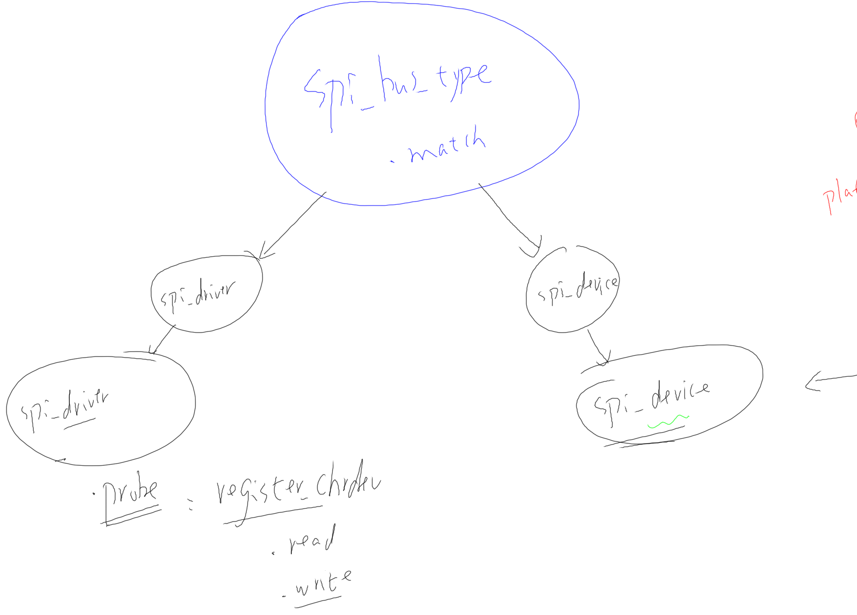 spi_bus_type
.match
spi_driver
spi_device
spi_driver
spi_device
.probe : register_chrdev
.read
.write